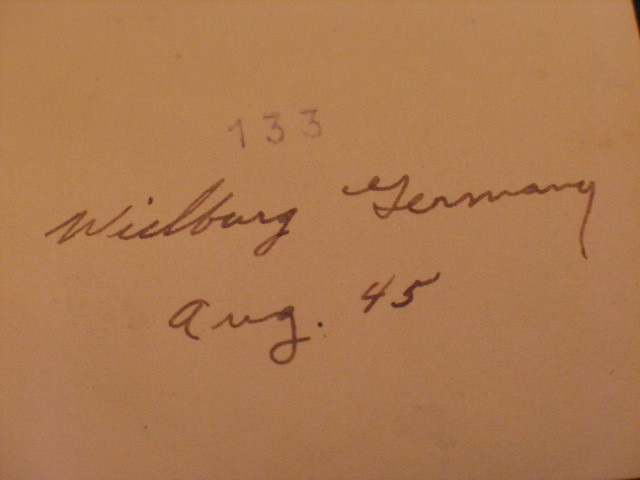 133
Wielburg Germany
Aug. 45